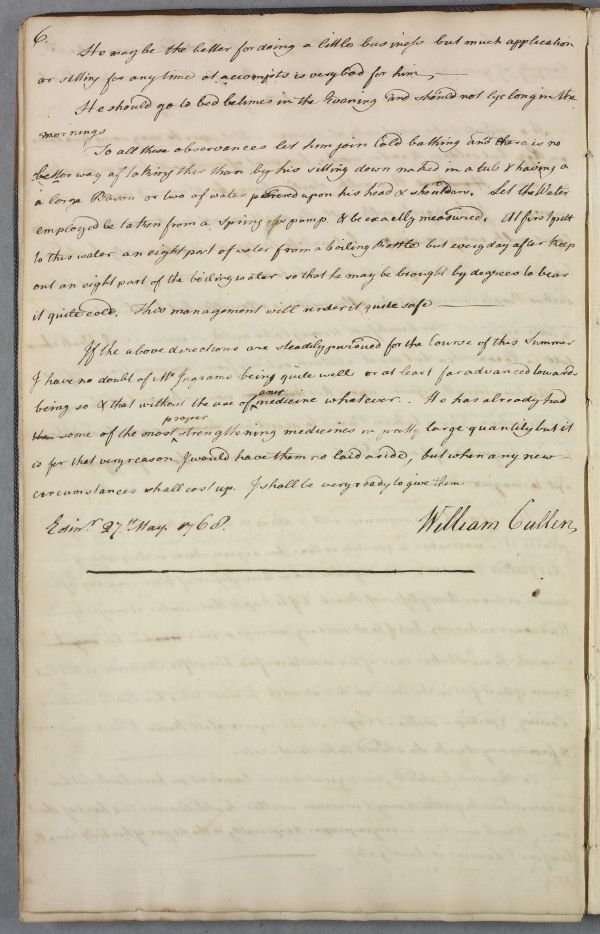 6.
He may be the better for doing a little business but much application
or sitting for any time at accompts is very bad for him,
He should go to bed betimes in the Evening and should not lye long in the
mornings
To all these observances let him join Cold bathing and there is no
better way of taking this than by his sitting down naked in a tub & having a
a large Bason or two of water poured upon his head & shoulders. Let the Water
employed be taken from a Spring or pump & be exactly measured. At first putt
to this water an eight part of water from a boiling Kettle but every day after keep
out an eight part of the boiling water so that he may be brought by degrees to bear
it quite cold. This management will render it quite safe
If the above directions are steadily pursued for the Course of this Summer
I have no doubt of Mr Ingrams being quite well or at least far advanced towards
being so & that without the use of any medicine whatever.. He has already had
some of the most proper strengthening medicines in pretty large quantity but it
is for that very reason I would have them no laid aside, but when any new
circumstances shall cast up. I shall be very ready to give them
Edinr. 27th May. 1768. William Cullen,